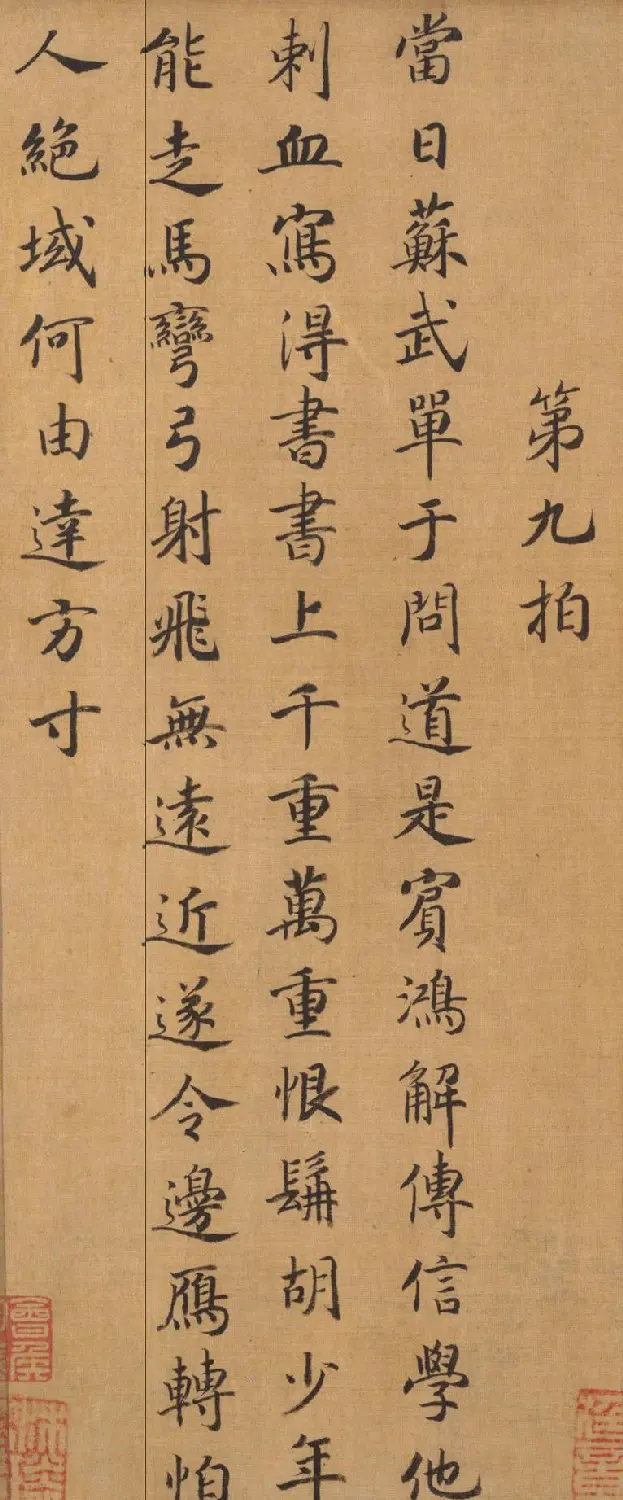 第九拍
當日蘇武單于問道是賓鴻解傳信學他
刺血寫得書書上千重萬重恨髯胡少年
能走馬彎弓射飛無遠近遂令邊鴈轉怕
人絕域何由達方寸